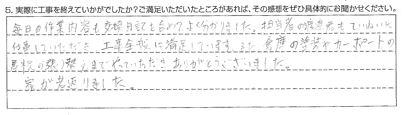 5. 実際に工事を終えていかがでしたか?ご満足いただいたところがあれば、その感想をぜひ具体的にお聞かせください。
毎日の作業内容も交換日記もとてもよく分かりました。担当者の方もていねいに
仕事していただき、工事全般に満足しています。また、車庫の塗装やカーポートの
張り替えまでやっていただきありがとうございました。
家が見違えりました。